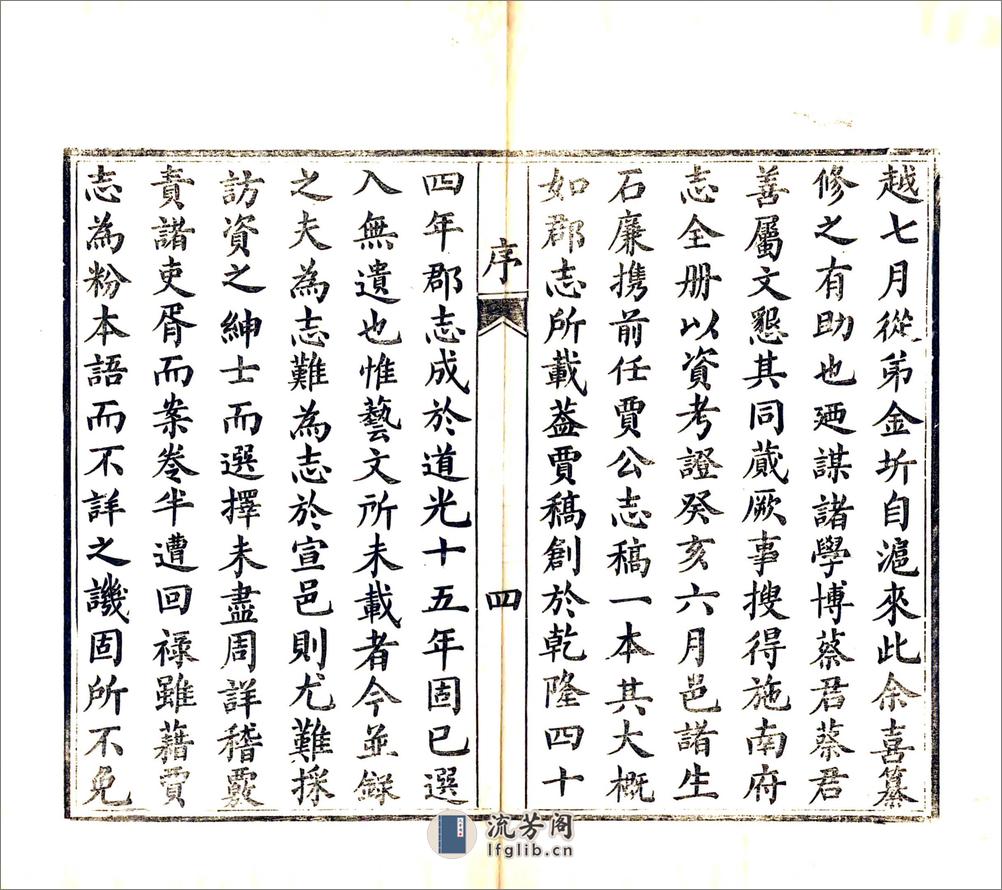 越七月從弟金圻自滬來此余喜纂
修之有助也廼謀諸學博蔡君蔡君
善屬文懇其同蕆厥事搜得施南府
志全册以資考證癸亥六月邑諸生
石廉携前任賈公志稿一本其大概
如郡志所載葢賈稿創於乾隆四十
序
四
四年郡志成於道光十五年固已選
入無遺也惟藝文所未載者今並錄
之夫為志難為志於宣邑則尤難採
訪資之紳士而選擇未盡周詳稽覈
責諸吏胥而案卷半遭回祿雖藉賈
志為粉本語而不詳之譏固所不免
流芳阁
lfglib.cn